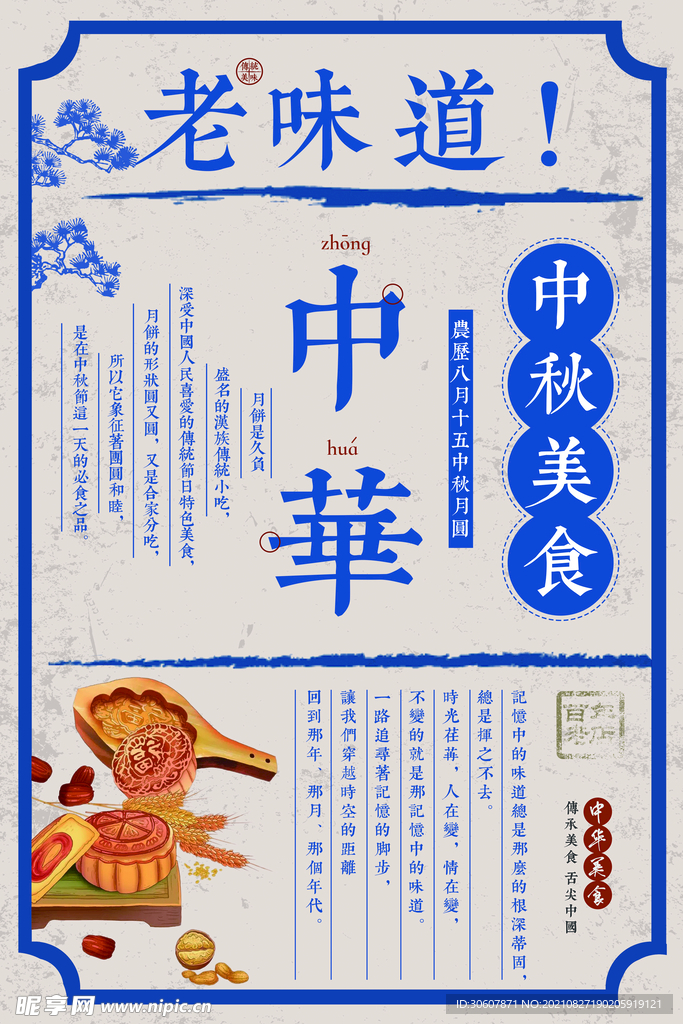 老味道！
傳統
美味
zhōng
中
huá
華
中秋美食
農歷八月十五中秋月圓
月餅是久負
盛名的漢族傳統小吃，
深受中國人民喜愛的傳統節日特色美食，
月餅的形狀圓又圓，又是合家分吃，
所以它象征著團圓和睦，
是在中秋節這一天的必食之品。
百年
老店
中华美食
傳承美食 舌尖中國
記憶中的味道總是那麼的根深蒂固，
總是揮之不去。
時光荏苒，人在變，情在變，
不變的就是那記憶中的味道。
一路追尋著記憶的脚步，
讓我們穿越時空的距離
回到那年、那月、那個年代。
昵享网 www.nipic.cn
ID:30607871 NO:20210827190205919121